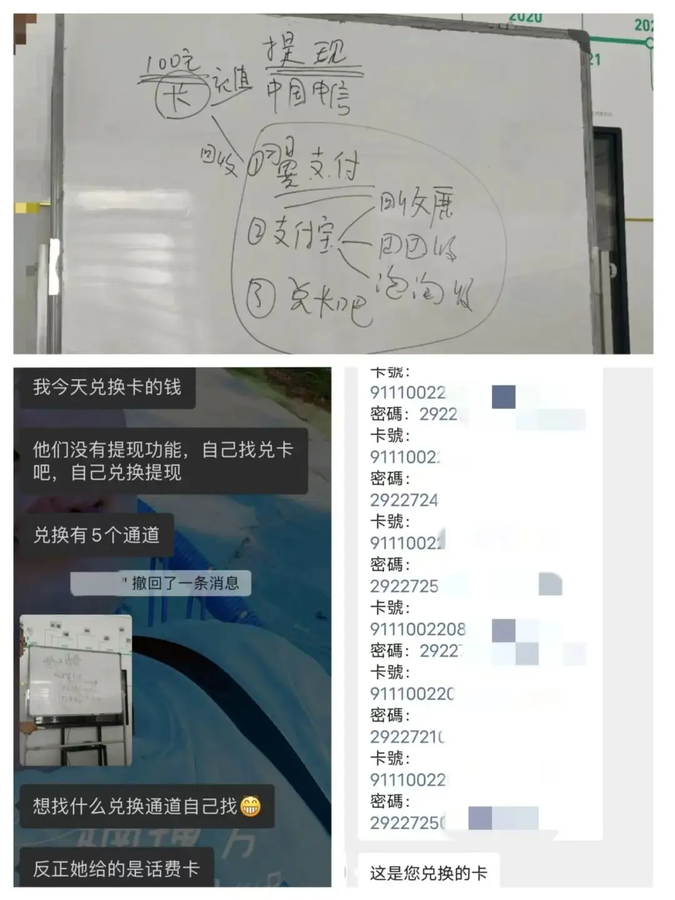 2020
202
21
100元 提现
卡 充值 中国电信
回收 ①翼支付
②支付宝
回收展
③兑卡吧
我今天兑换卡的钱
他们没有提现功能，自己找兑卡
吧，自己兑换提现
兑换有5个通道
" 撤回了一条消息
想找什么兑换通道自己找😁
反正她给的是话费卡
卡號：
91110022
密碼：2922
卡號：
9111002
密碼：
2922724
卡號：
9111002
密碼：
2922725
卡號：
9111002208
密碼：2922
卡號：
911100220
密碼：
2922721
卡號：
91110022
密碼：
2922725
这是您兑换的卡